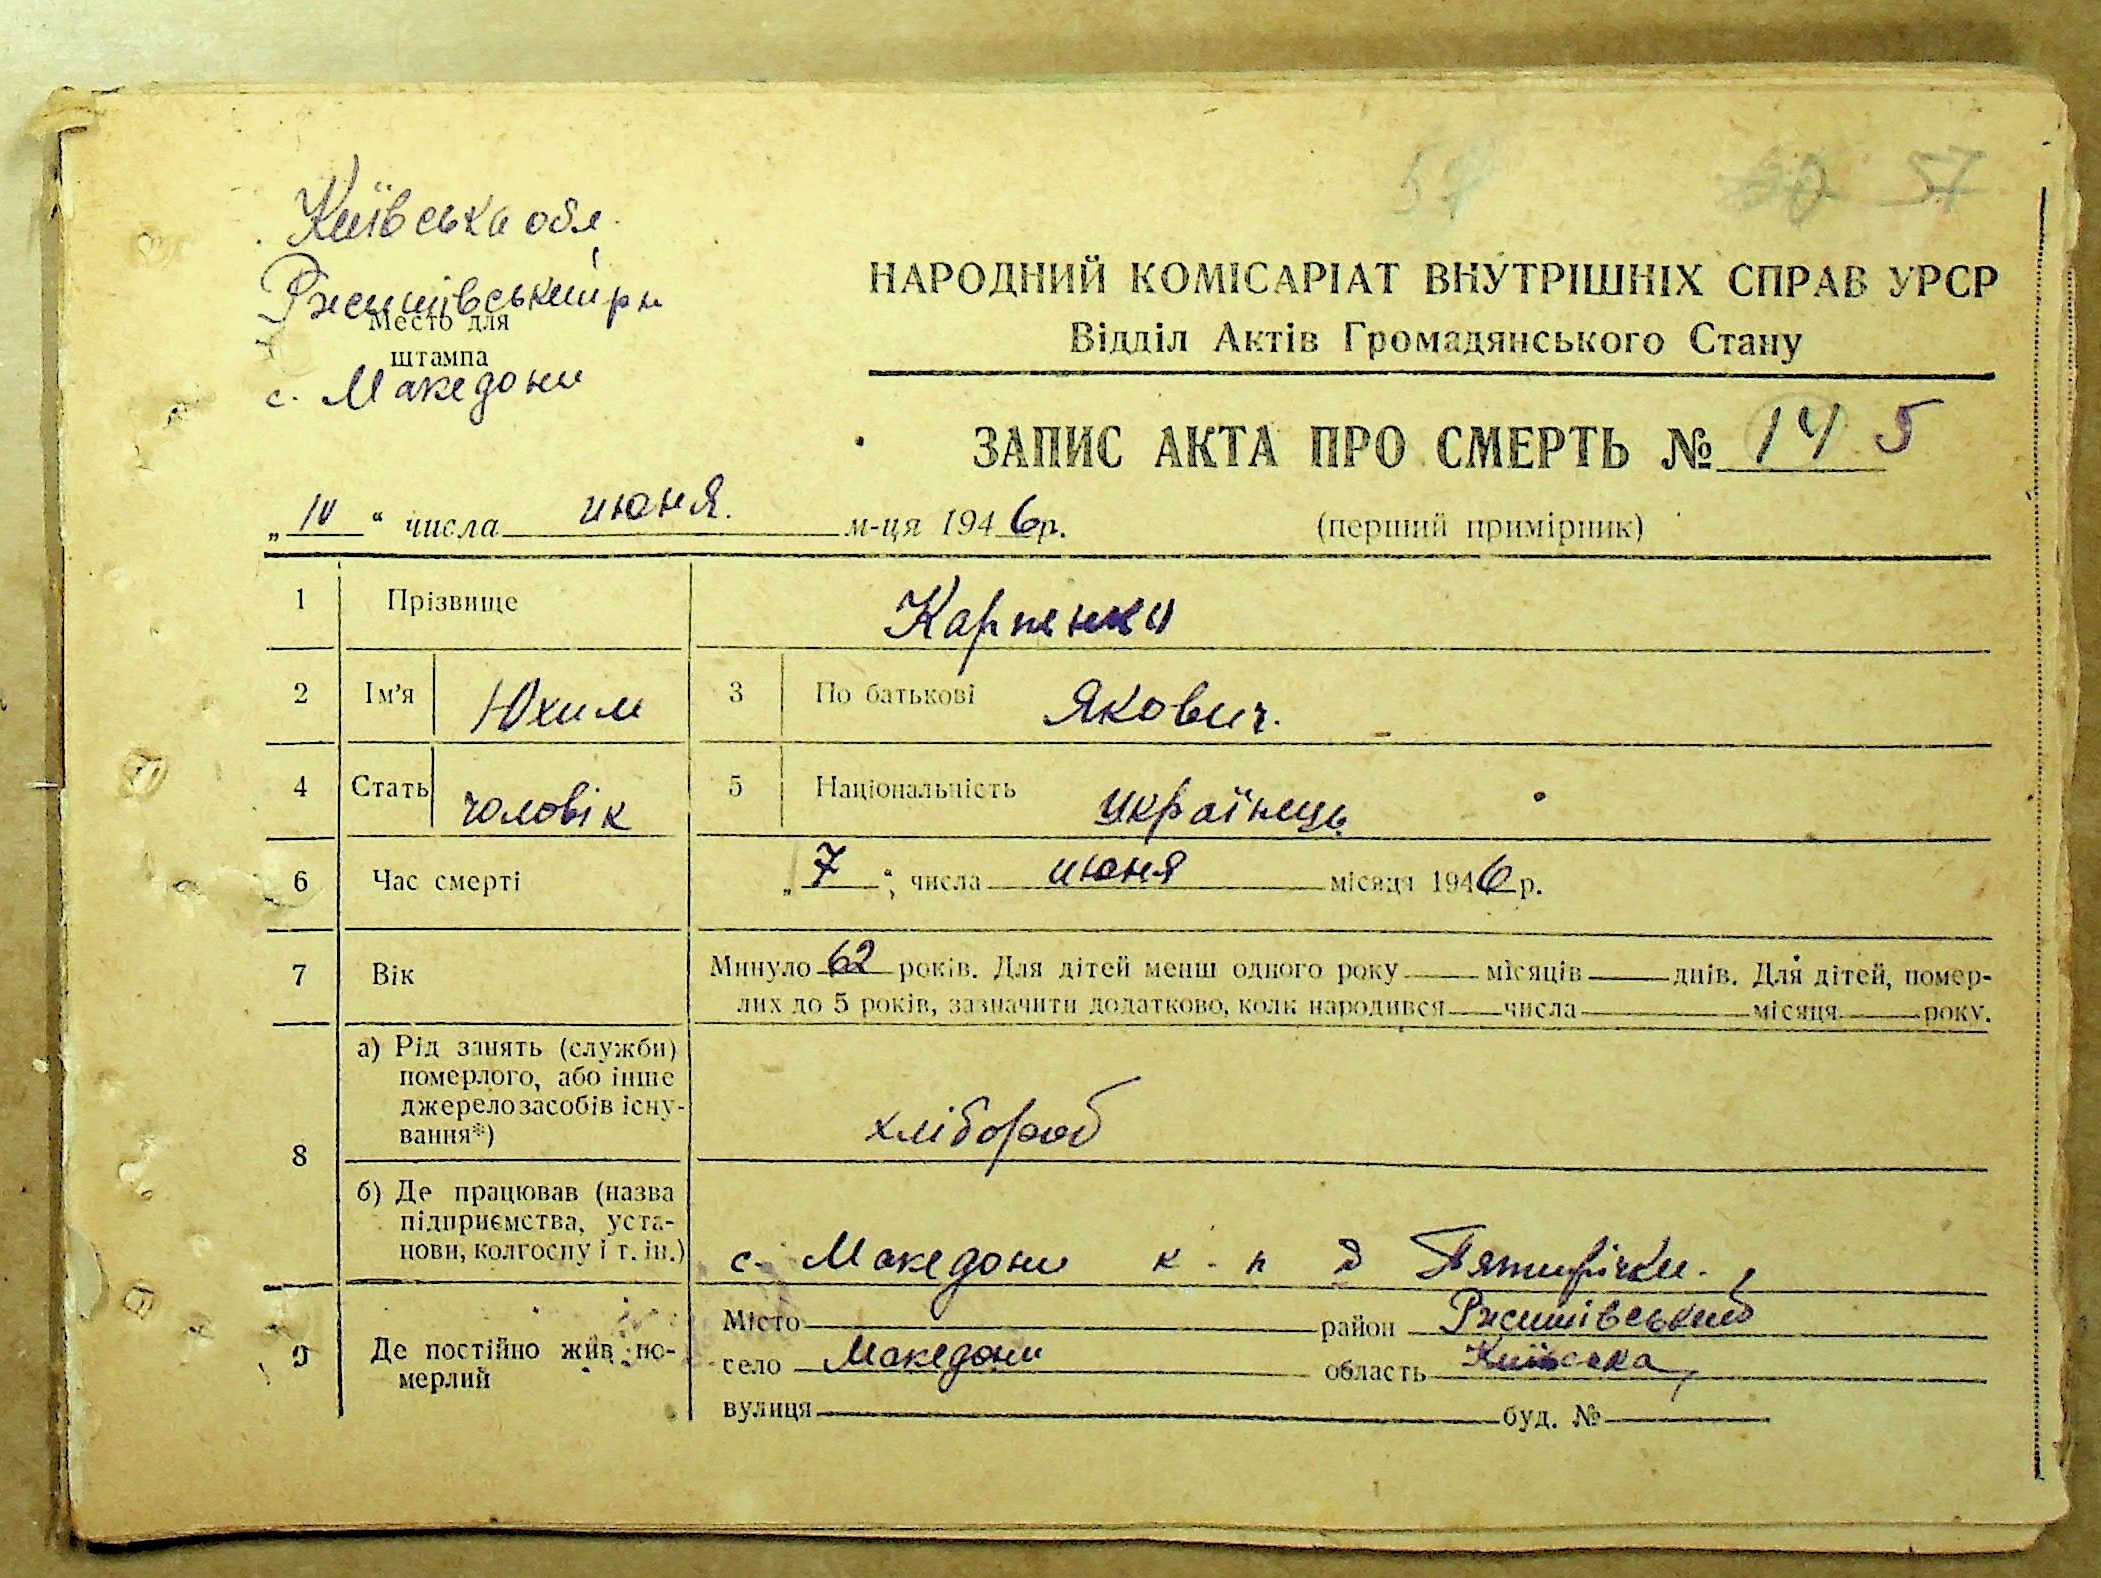 57 57
Київська обл.
Ржищівський рн
Место для
штампа
с. Македони
НАРОДНИЙ КОМІСАРІАТ ВНУТРІШНІХ СПРАВ УРСР
Відділ Актів Громадянського Стану
ЗАПИС АКТА ПРО СМЕРТЬ № 14 5
„10“ числа июня. м-ця 1946р. (перший примірник)
1 Прізвище Карпенко
2 Ім'я Юхим 3 По батькові Якович.
4 Стать чоловік 5 Національність українець
6 Час смерті „7“ числа июня місяця 1946р.
7 Вік Минуло 62 років. Для дітей менш одного року місяців днів. Для дітей, помер-
лих до 5 років, зазначити додатково, коли народився числа місяця року.
8 а) Рід занять (служби)
померлого, або інше
джерело засобів існу-
вання*)
хлібороб
б) Де працював (назва
підприємства, уста-
нови, колгоспу і т. ін.)
с. Македони к-п Пятирічки.
9 Де постійно жив по-
мерлий
Місто район Ржищівський
село Македони область Київська
вулиця буд. №